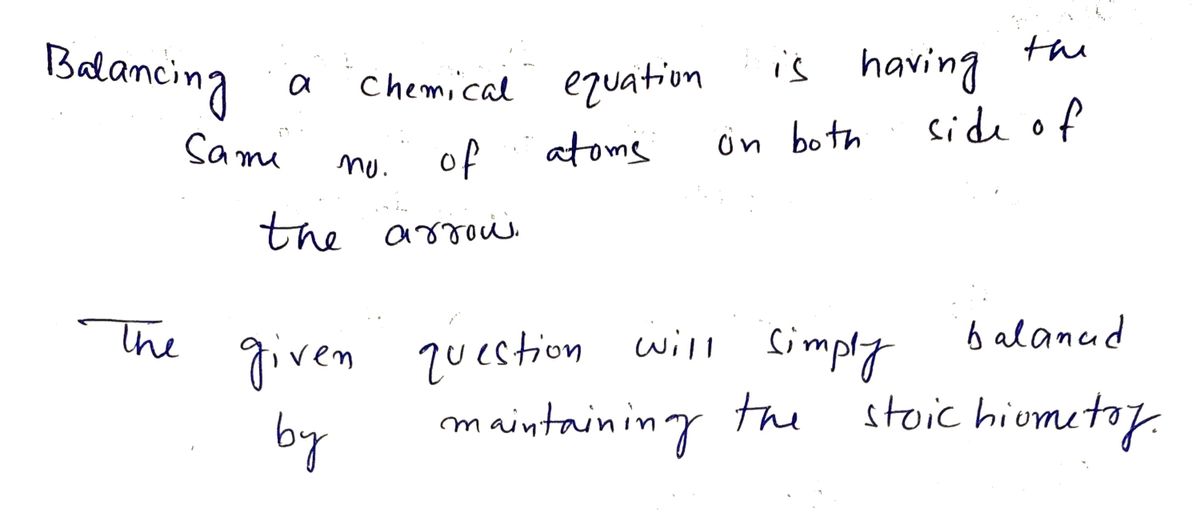 Balancing a chemical equation is having the
same no. of atoms on both side of
the arrow.
The given question will simply balanced
by maintaining the stoichiometry.